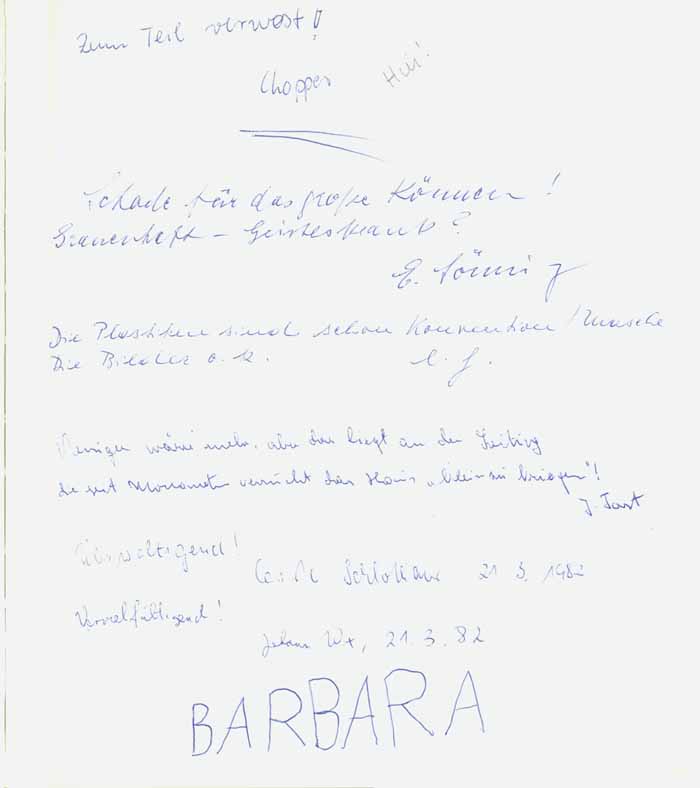 Zum Teil verwest!
Chopper
Hui!
Schade für das große Können!
Grauenhaft – Geisteskrank?
E.
Die Plastiken sind schon Konvention / Masche
Die Bilder o.k.
Weniger wäre mehr, aber das liegt an der Leitung
die seit Monaten versucht das Haus "klein zu kriegen"!
J. Tast
Überwältigend!
21 3. 1982
Vervielfältigend!
21.3.82
BARBARA